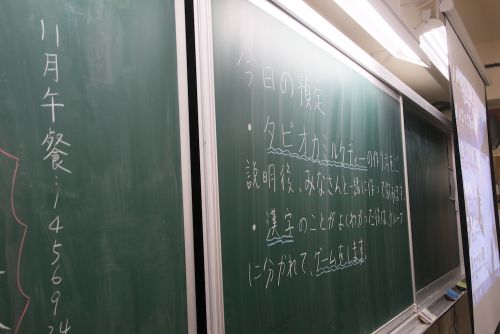 11月午餐:
4
5
6
9
24
今日の預定
・タピオカミルクティーの作り方をご
説明後、みなさんと一緒に作って飲みます。
・漢字のことがよくわかったほは、グループ
に分かれて、ゲームをします。